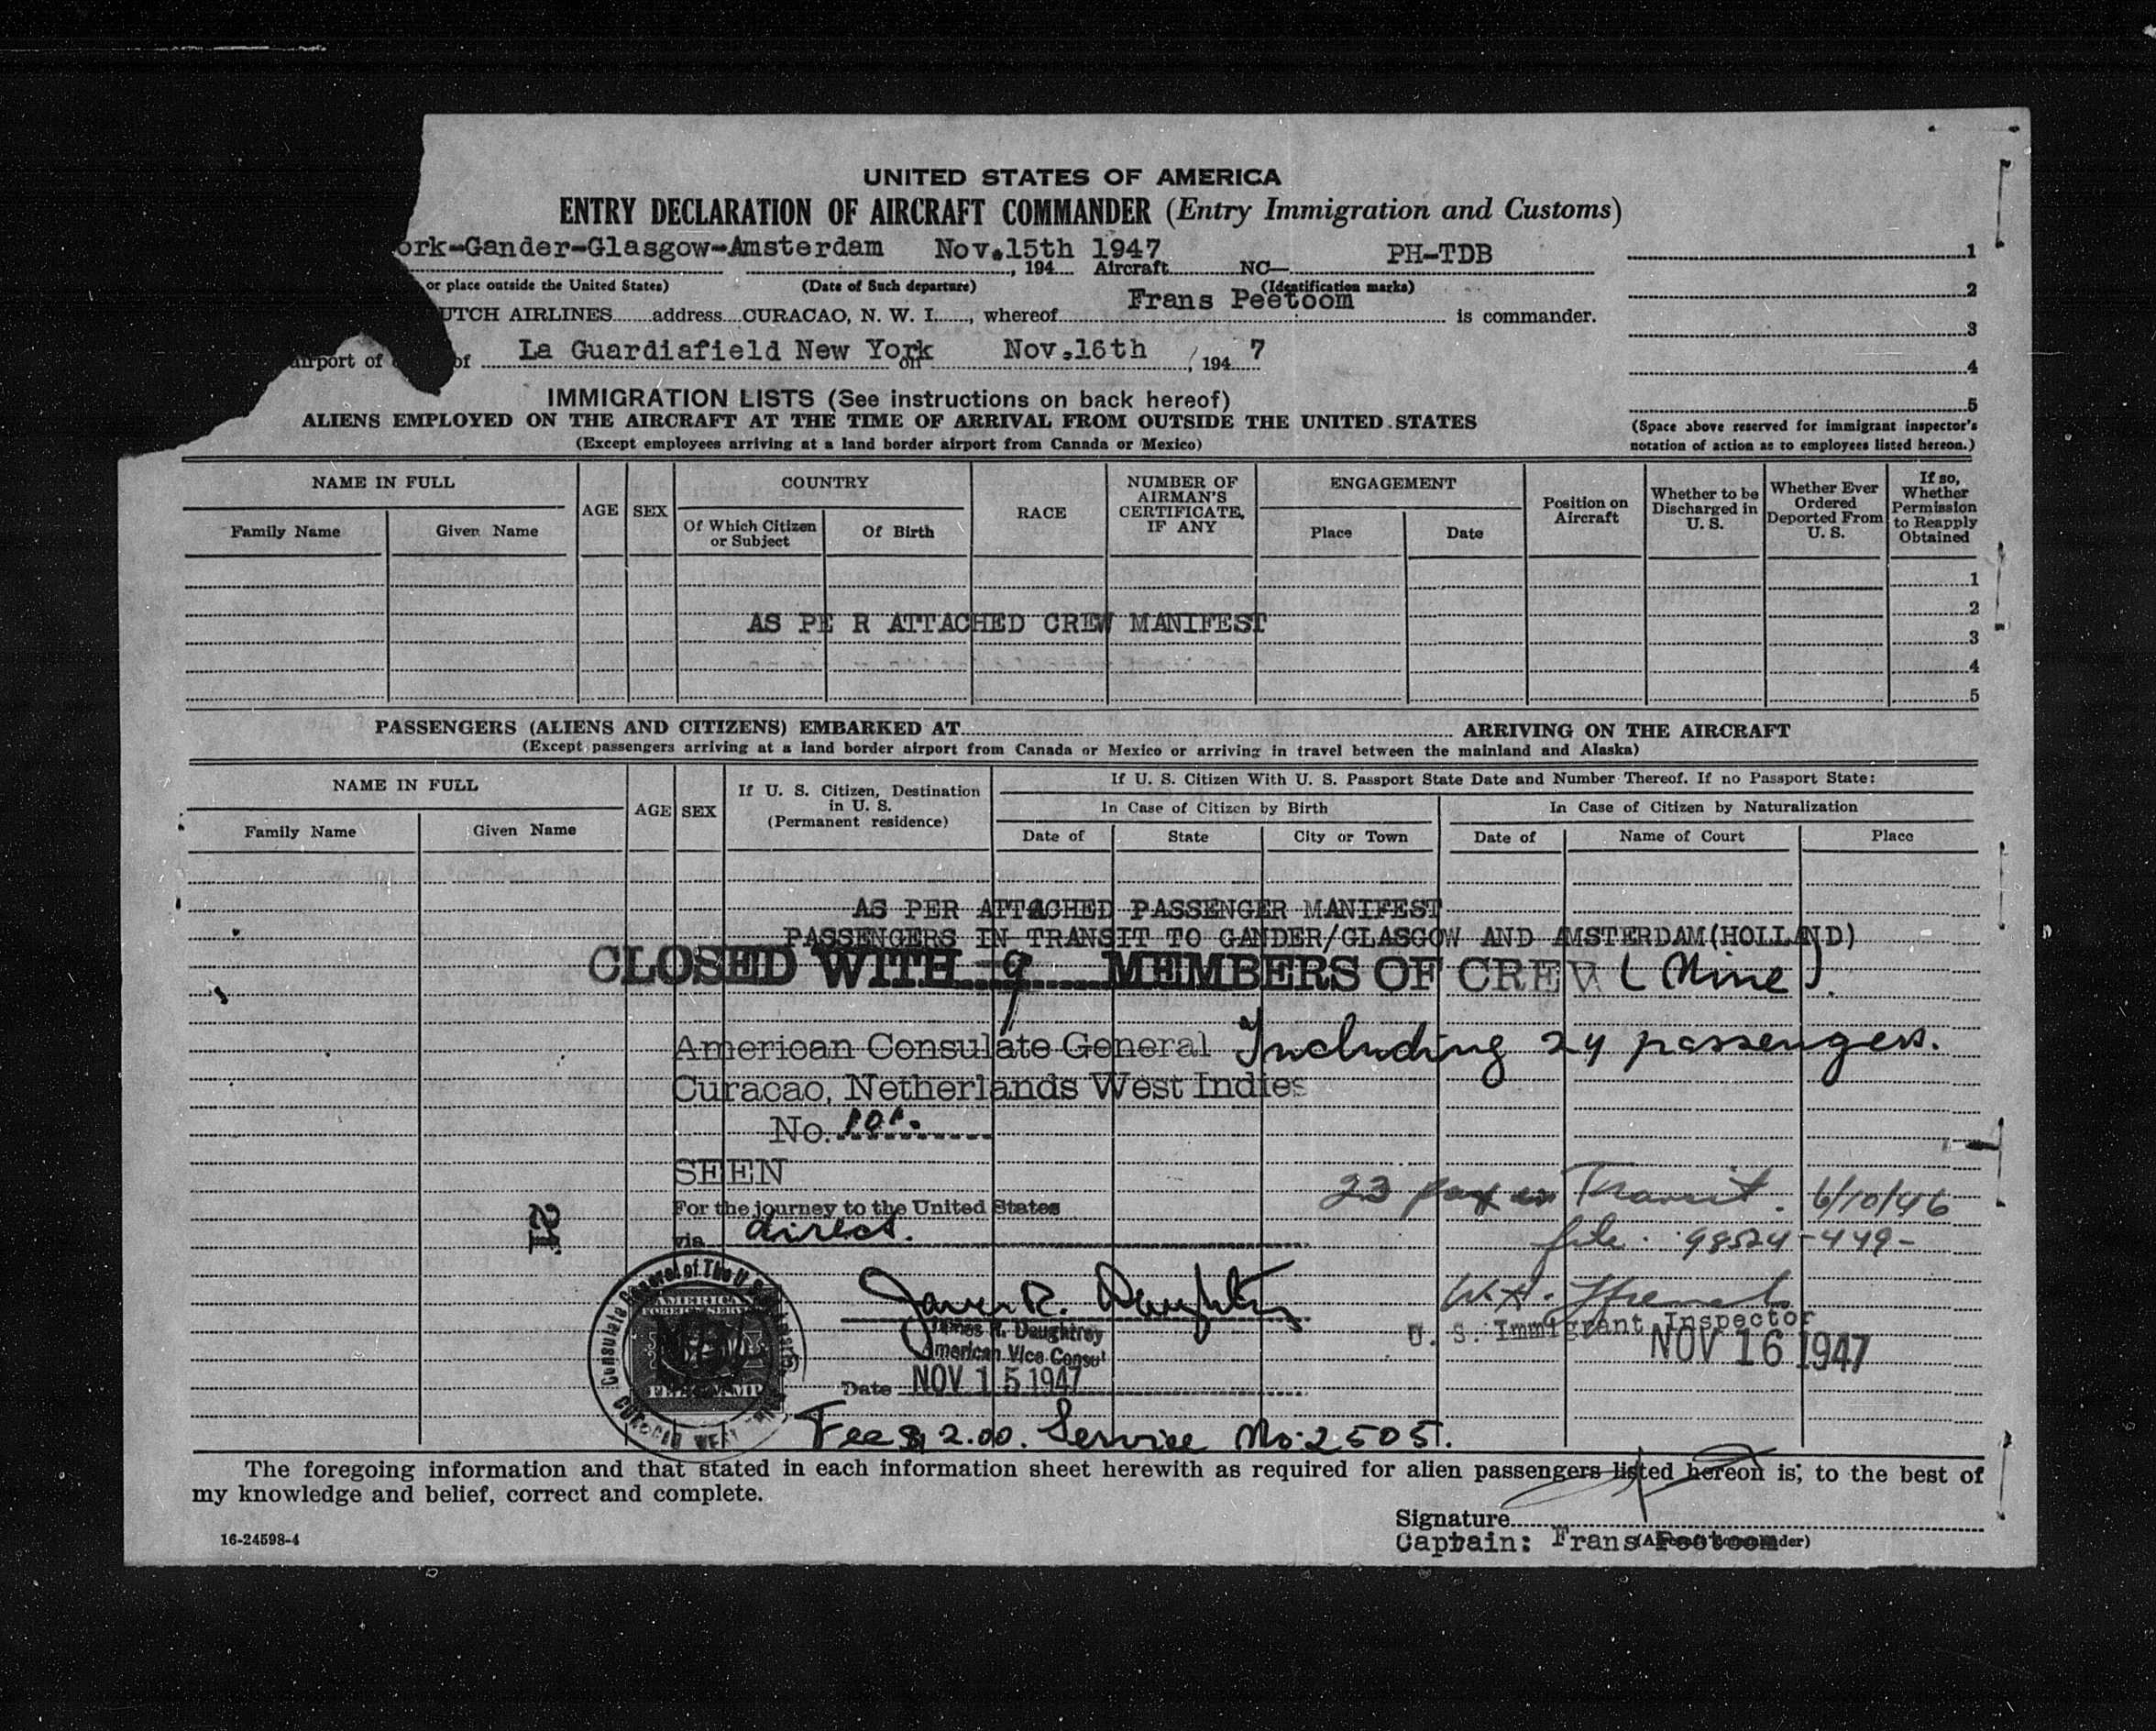 UNITED STATES OF AMERICA
ENTRY DECLARATION OF AIRCRAFT COMMANDER (Entry Immigration and Customs)
ork-Gander-Glasgow-Amsterdam Nov.15th 1947 PH-TDB
, 194 Aircraft NC—
or place outside the United States) (Date of Such departure) (Identification marks)
Frans Peetoom
UTCH AIRLINES address CURACAO, N. W. I., whereof is commander.
airport of of La Guardiafield New York on Nov.16th , 194 7
1
2
3
4
5
(Space above reserved for immigrant inspector's
notation of action as to employees listed hereon.)
IMMIGRATION LISTS (See instructions on back hereof)
ALIENS EMPLOYED ON THE AIRCRAFT AT THE TIME OF ARRIVAL FROM OUTSIDE THE UNITED STATES
(Except employees arriving at a land border airport from Canada or Mexico)
NAME IN FULL
Family Name Given Name
AGE SEX
COUNTRY
Of Which Citizen or Subject
Of Birth
RACE
NUMBER OF AIRMAN'S CERTIFICATE, IF ANY
ENGAGEMENT
Place Date
Position on Aircraft
Whether to be Discharged in U. S.
Whether Ever Ordered Deported From U. S.
If so, Whether Permission to Reapply Obtained
1
2
AS PE R ATTACHED CREW MANIFEST
3
4
5
PASSENGERS (ALIENS AND CITIZENS) EMBARKED AT ARRIVING ON THE AIRCRAFT
(Except passengers arriving at a land border airport from Canada or Mexico or arriving in travel between the mainland and Alaska)
NAME IN FULL
Family Name Given Name
AGE SEX
If U. S. Citizen, Destination in U. S.
(Permanent residence)
If U. S. Citizen With U. S. Passport State Date and Number Thereof. If no Passport State:
In Case of Citizen by Birth In Case of Citizen by Naturalization
Date of State City or Town Date of Name of Court Place
AS PER ATTACHED PASSENGER MANIFEST
PASSENGERS IN TRANSIT TO GANDER/GLASGOW AND AMSTERDAM(HOLLAND)
CLOSED WITH 9 MEMBERS OF CREW (Nine).
American Consulate General Including 24 passengers.
Curacao, Netherlands West Indies
No. 101.
SEEN
23 pax in Transit. 6/10/46
For the journey to the United States
via direct.
file. 98524-449-
12
AMERICAN
FOREIGN SERVICE
James R. Daughtrey
James R. Daughtrey
American Vice Consul
W.H.
U. S. Immigrant Inspector
NOV 16 1947
Date NOV 15 1947
Fee $ 2.00. Service No. 2505.
The foregoing information and that stated in each information sheet herewith as required for alien passengers listed hereon is, to the best of
my knowledge and belief, correct and complete.
Signature
Captain: Frans Peetoom
16-24598-4